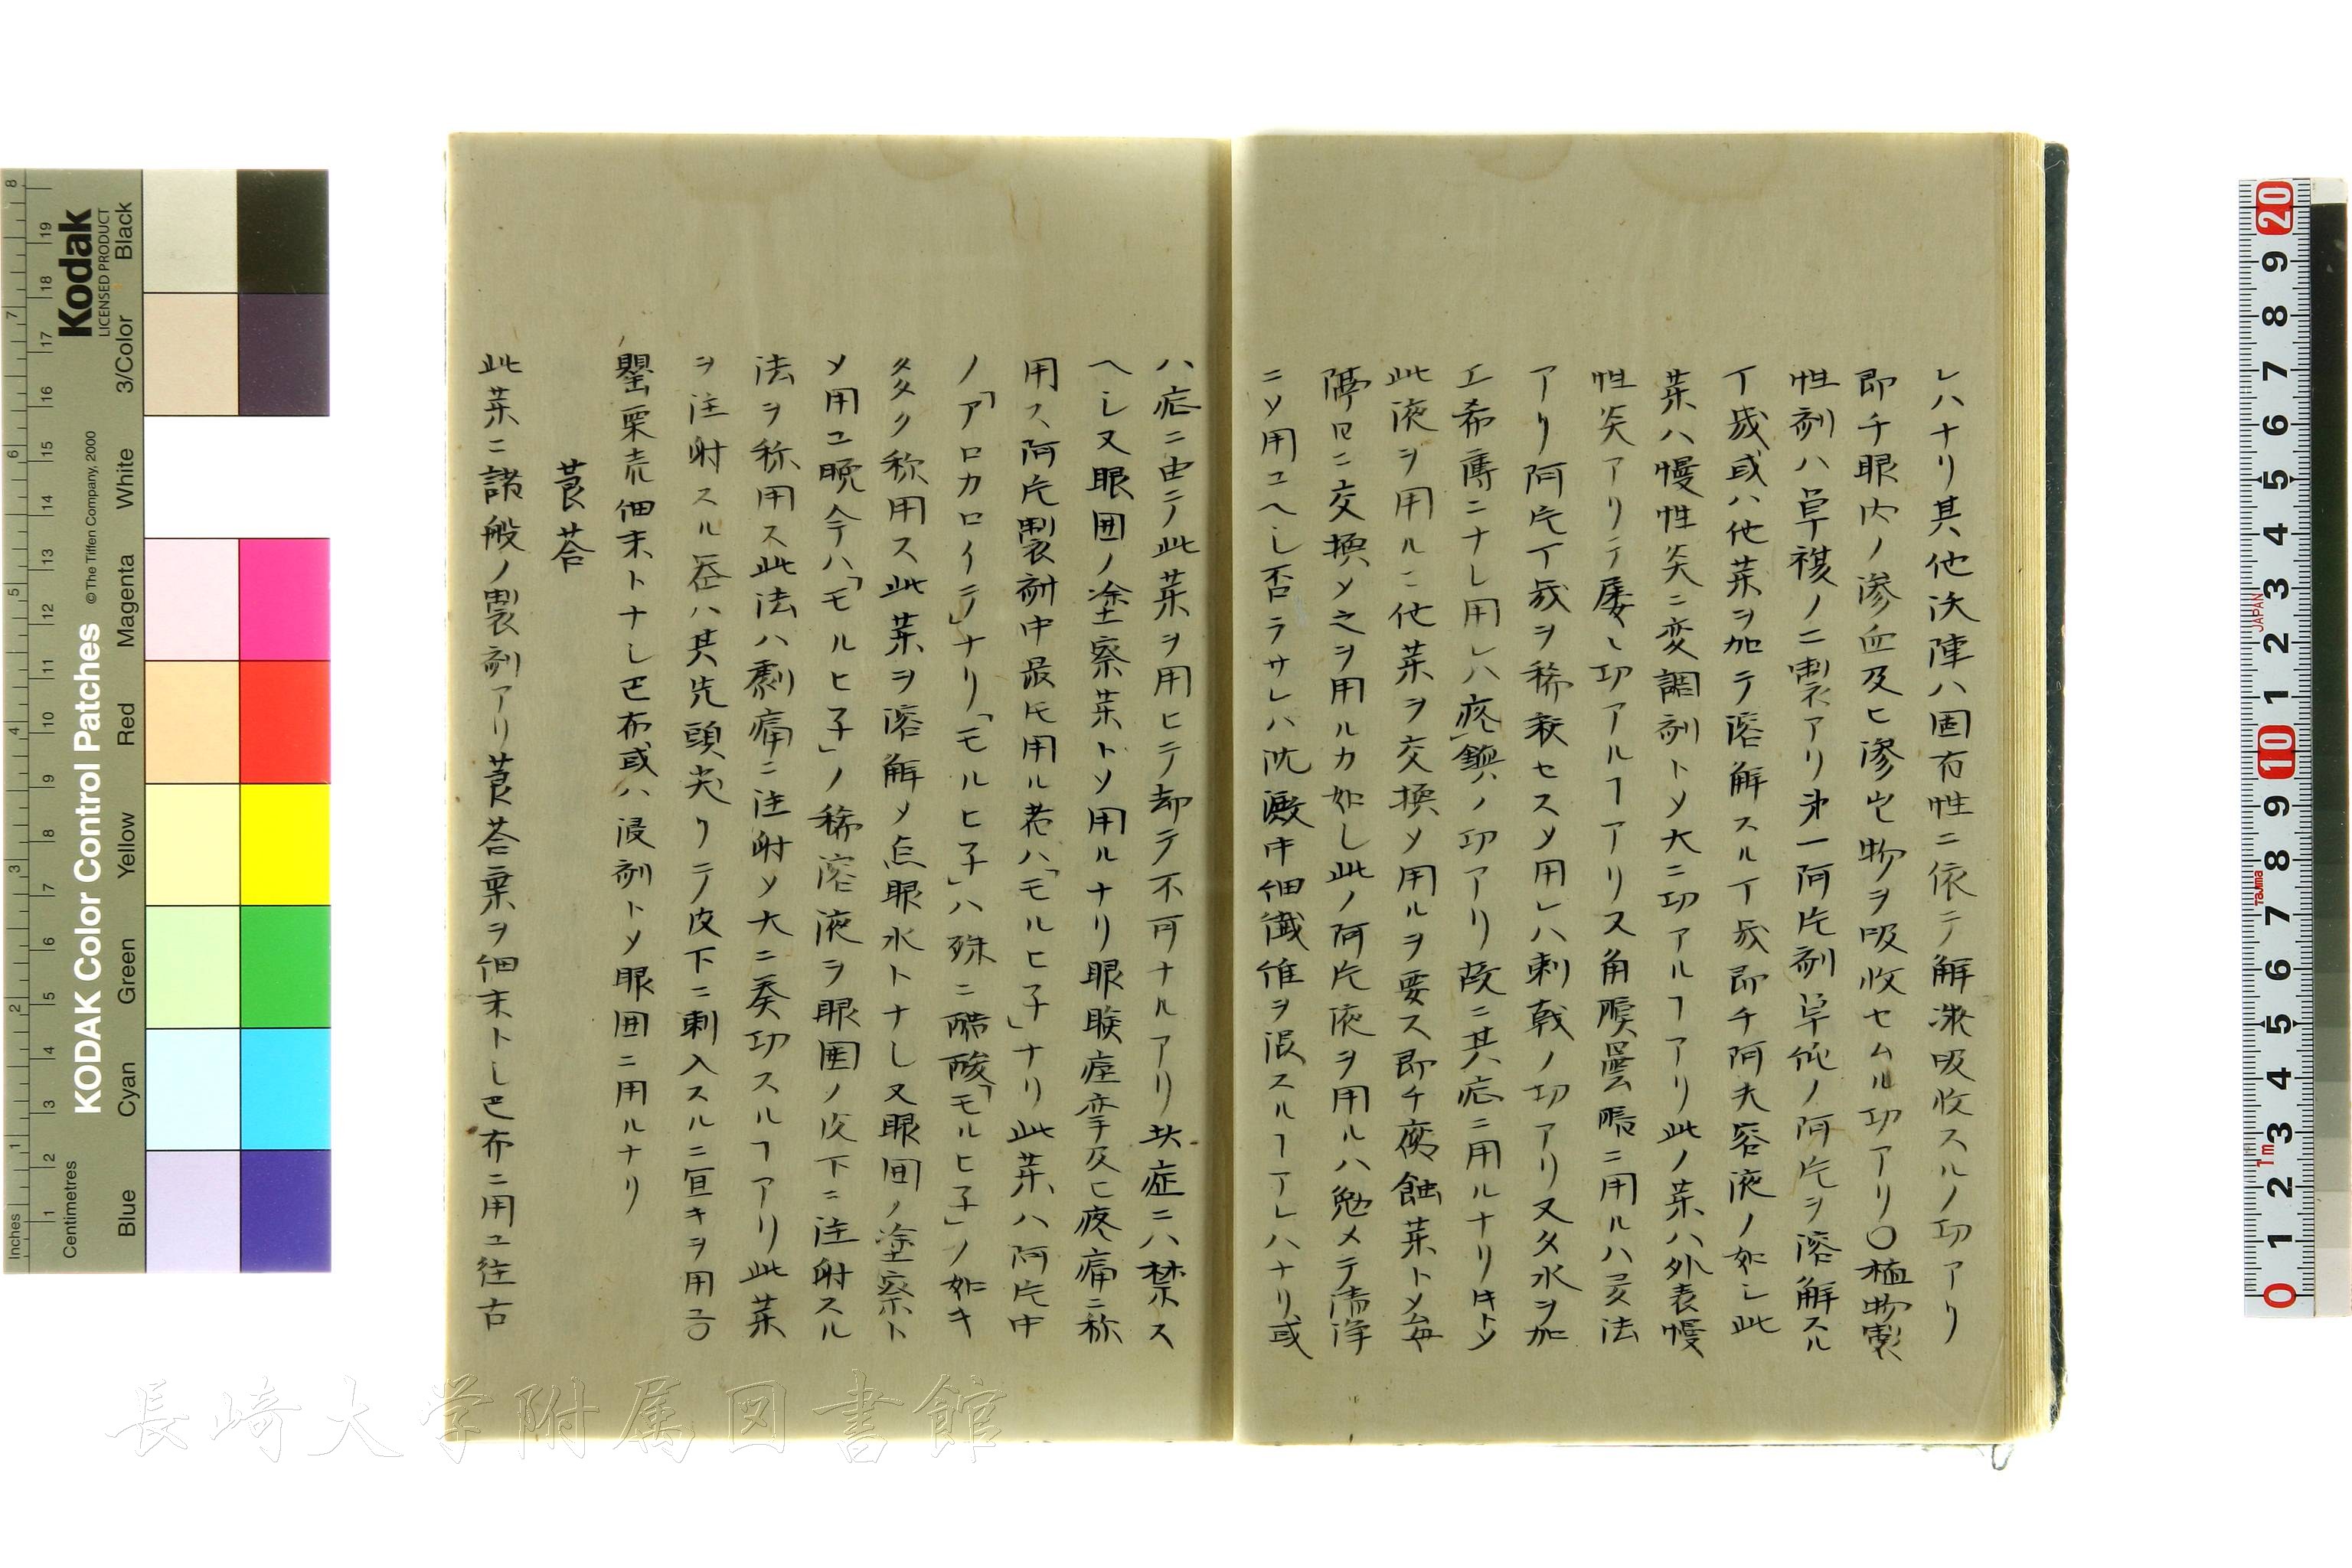 レハナリ其他沃陳ハ固有性ニ依テ解凝吸收スルノ功アリ
即チ眼内ノ滲血及ヒ滲出物ヲ吸收セムル功アリ〇植物製
性剤ハ單複ノ二製アリ第一阿片剤單他ノ阿片ヲ溶解スル
丁幾或ハ他薬ヲ加テ溶解スル丁幾即チ阿夫容液ノ如し此
薬ハ慢性炎ニ変調剤トメ大ニ功アルヿアリ此ノ薬ハ外表慢
性炎アリテ屡〻功アルヿアリス角膜曇暗ニ用ルハ灵法
アリ阿片丁幾ヲ稀釈セスメ用レハ刺戟ノ功アリ又タ水ヲ加
エ希薄ニナし用レハ疼鎮ノ功アリ故ニ其症ニ用ルナリ時トメ
此液ヲ用ルニ他薬ヲ交換メ用ルヲ要ス即チ腐蝕薬トメ毎
隔日ニ交換メ之ヲ用ルカ如し此ノ阿片液ヲ用ルハ勉メテ清浄
ニメ用ユヘし否ラサレハ沈澱中細繊維ヲ混スルヿアレハナリ或
ハ症ニ由テ此薬ヲ用ヒテ却テ不可ナルアリ其症ニハ禁ス
ヘし又眼囲ノ塗察薬トメ用ルナリ眼瞼痙挛及ヒ疼痛ニ称
用ス阿片製剤中最モ用ル者ハ「モルヒ子」ナリ此薬ハ阿片中
ノ「アロカロイテ」ナリ「モルヒ子」ハ殊ニ醋酸「モルヒ子」ノ如キ
多タク称用ス此薬ヲ溶解メ点眼水トナし又眼囲ノ塗察ト
メ用ユ晩今ハ「モルヒ子」ノ稀溶液ヲ眼囲ノ皮下ニ注射スル
法ヲ称用ス此法ハ劇痛ニ注射メ大ニ奏功スルヿアリ此薬
ヲ注射スル器ハ其先頭尖リテ皮下ニ刺入スルニ宜キヲ用ユ〇
罌粟売細末トナし巴布或ハ浸剤トメ眼囲ニ用ルナリ
莨菪
此薬ニ諸般ノ製剤アリ莨菪葉ヲ細末トし巴布ニ用ユ往古
長崎大学附属図書館
KODAK Color Control Patches
© The Tiffen Company, 2000
Kodak
LICENSED PRODUCT
Inches
Centimetres
Blue Cyan Green Yellow Red Magenta White 3/Color Black
JAPAN
Tajima
1m